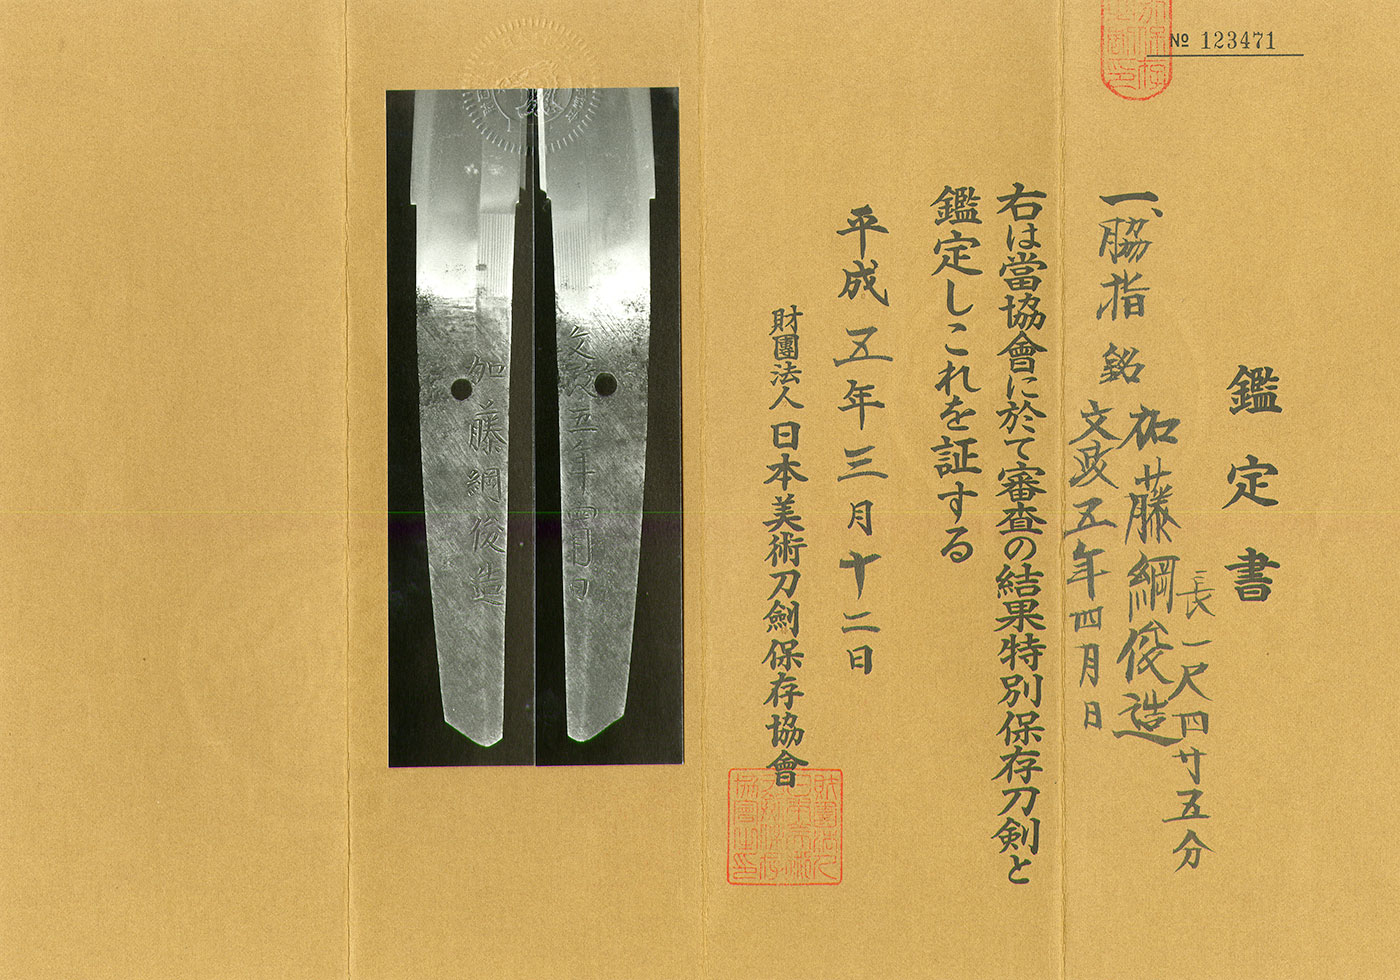 № 123471
鑑定書
一、脇指 銘 加藤綱俊造
文政五年四月日
長一尺四寸五分
右は當協會に於て審査の結果特別保存刀剣と
鑑定しこれを証する
平成五年三月十二日
財團法人日本美術刀劍保存協會
文政五年四月日
加藤綱俊造